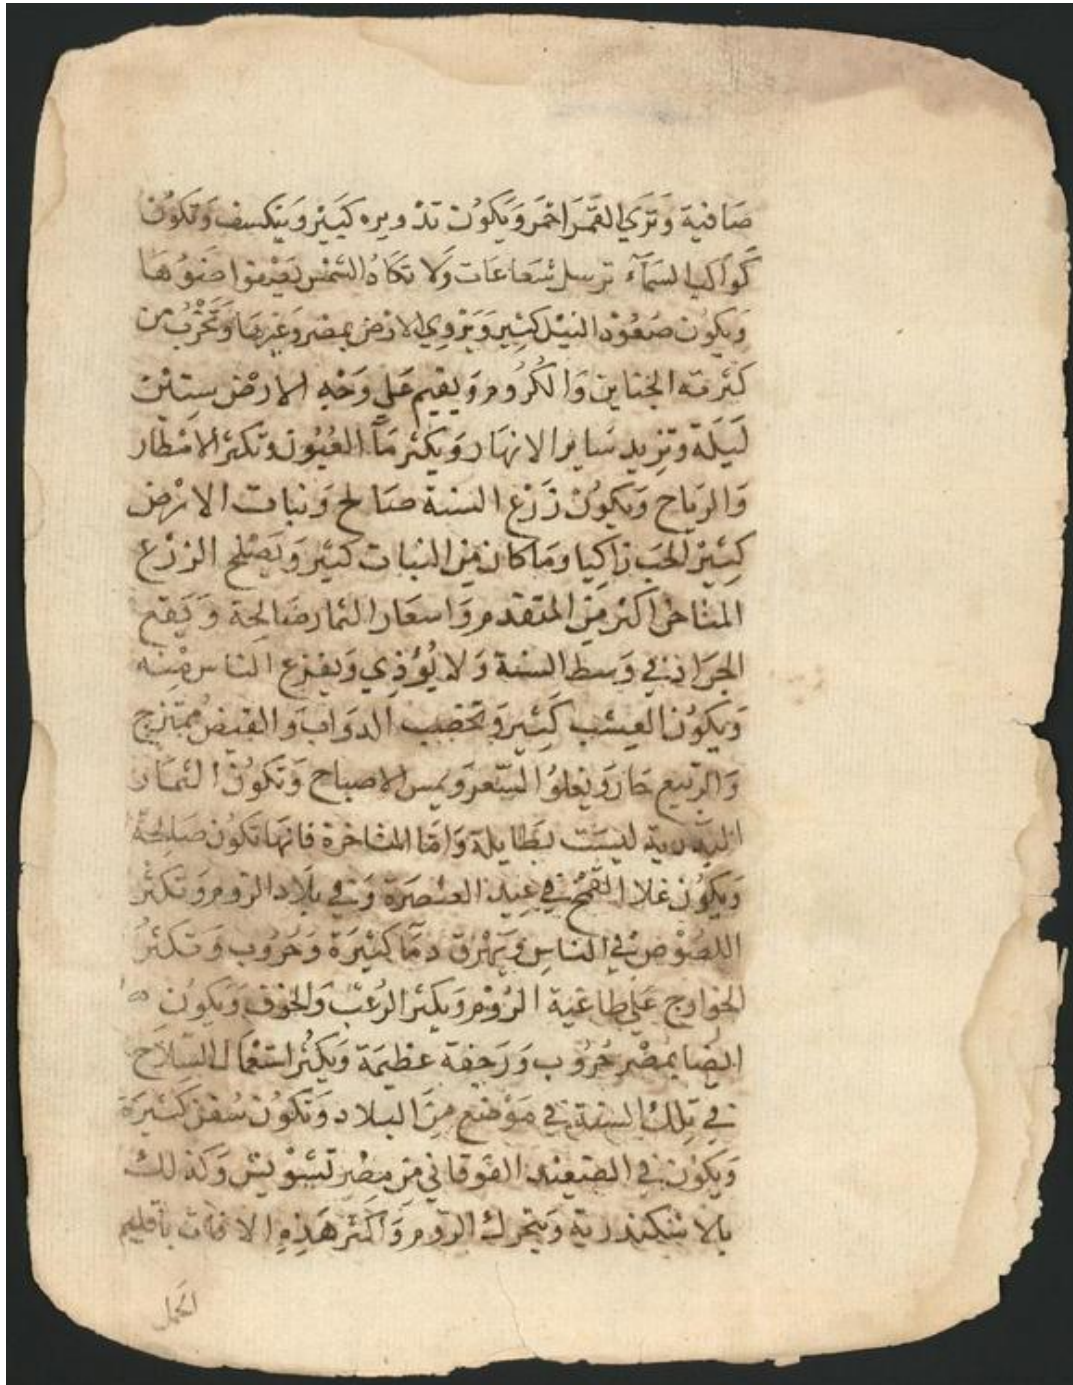 صَافية وَتَري القمَر احمَر وَيَكوُن تدْويره كبَيْر وَينكسف وَتكوُن
كوَاكب السَمَآء ترسل شعَاعَات وَلا تكادُ الشمْس يَعْرفوا ضَوُهَا
وَيكوُن صَعُوْد النيْل كثِير وَيَرْوي الارْض بمصْر وَغيرهَا وَتَخْرُب من
كثرته الجنَاين وَالكُرُوم وَيقيم عَلي وَجْه الارْض ستيْن
لَيلَة وَتزيد سَاير الانهَار وَيكثر مَآ العُيُوْن وَتكثر الامْطَار
وَالريَاح وَيكوُن زَرْع السنة صَالح وَنبات الارْض
كثيْر الحَب زَاكيا وَمَا كان مِن النبات كثيْر وَيَصْلح الزرْع
المتاخر اكثر مِن المتقدم وَاسعَار الثمار صَالحة وَيَقع
الجرَاد في وَسط السنة وَلا يُؤذي وَيفزع الناس مِنه
وَيكوُن العشب كَثير وَتخصب الدوَاب وَالقيض ممتزج
وَالربيع حَار وَيغلوُا السّعر وَيبس الاصباح وَتكوُن الثمَار
البَدرية ليسَت بطَايلة وَامّا المتاخرة فانهَا تكوُن صَالِحة
وَيكوُن غلا القمْح في عِيد العنصَرَة وَفي بلَاد الروم وَتكثر
اللصُوْص في الناس وَيهْرق دمَآ كثيْرَة وَحُرُوب وَتكثرُ
الخوارج عَلي طاغية الرُوْم وَيكثر الرُعْب وَالخوْف وَيَكوُن
ايضا بمصْر حُرُوب وَرَجفة عظيمَة وَيكثُر استعْمَال السلَاح
في تِلكَ السنة في مَوْضع مِنَ البلاد وَتكوُن سُفن كَثيرَة
وَيكوُن في الصَعيْد الفوْقاني من مصْر تشوْيش وَكذلك
بالاسْكندرية وَيتحرك الروم وَاكثر هَذِه الافات باقليم
الحمل